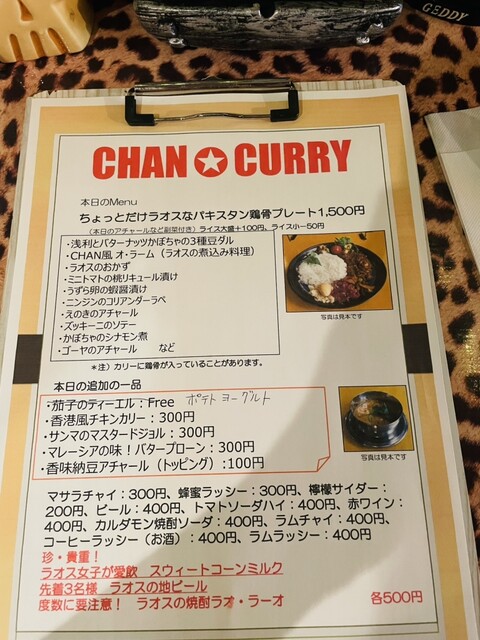 GEDDY
CHAN★CURRY
本日のMenu
ちょっとだけラオスなパキスタン鶏骨プレート1,500円
(本日のアチャールなど副菜付き) ライス大盛+100円、ライス小−50円
・浅利とバターナッツかぼちゃの3種豆ダル
・CHAN風 オ・ラーム（ラオスの煮込み料理）
・ラオスのおかず
・ミニトマトの桃リキュール漬け
・うずら卵の蝦醤漬け
・ニンジンのコリアンダーラペ
・えのきのアチャール
・ズッキーニのソテー
・かぼちゃのシナモン煮
・ゴーヤのアチャール　など
写真は見本です
＊注）カリーに鶏骨が入っていることがあります。
本日の追加の一品
・茄子のティーエル：Free ポテトヨーグルト
・香港風チキンカリー：300円
・サンマのマスタードジョル：300円
・マレーシアの味！バタープローン：300円
・香味納豆アチャール（トッピング）:100円
写真は見本です
マサラチャイ：300円、蜂蜜ラッシー：300円、檸檬サイダー：
200円、ビール：400円、トマトソーダハイ：400円、赤ワイン：
400円、カルダモン焼酎ソーダ：400円、ラムチャイ：400円、
コーヒーラッシー（お酒）：400円、ラムラッシー：400円
珍・貴重！
ラオス女子が愛飲　スウィートコーンミルク
先着3名様　ラオスの地ビール
度数に要注意！　ラオスの焼酎ラオ・ラーオ　各500円